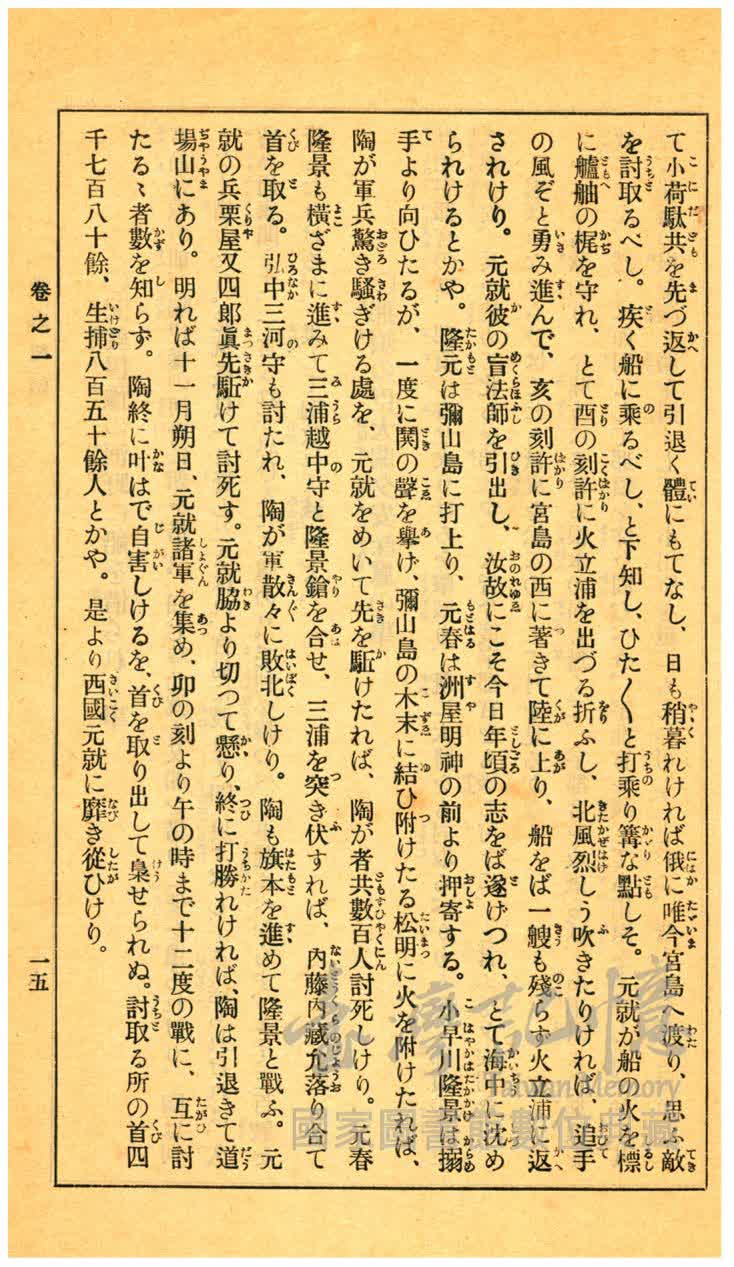 て小荷駄共を先づ返して引退く體にもてなし、日も稍暮れければ俄に唯今宮島へ渡り、思ふ敵
を討取るべし。疾く船に乘るべし、と下知し、ひた〱と打乘り篝な點しそ。元就が船の火を標
に艫舳の梶を守れ、とて酉の刻許に火立浦を出づる折ふし、北風烈しう吹きたりければ、追手
の風ぞと勇み進んで、亥の刻許に宮島の西に著きて陸に上り、船をば一艘も殘らず火立浦に返
されけり。元就彼の盲法師を引出し、汝故にこそ今日年頃の志をば遂げつれ、とて海中に沈め
られけるとかや。隆元は彌山島に打上り、元春は洲屋明神の前より押寄する。小早川隆景は搦
手より向ひたるが、一度に鬨の聲を擧げ、彌山島の木末に結ひ附けたる松明に火を附けたれば、
陶が軍兵驚き騷ぎける處を、元就をめいて先を駈けたれば、陶が者共數百人討死しけり。元春
隆景も橫ざまに進みて三浦越中守と隆景鎗を合せ、三浦を突き伏すれば、內藤內藏允落り合て
首を取る。弘中三河守も討たれ、陶が軍散々に敗北しけり。陶も旗本を進めて隆景と戰ふ。元
就の兵栗屋又四郎眞先駈けて討死す。元就脇より切つて懸り、終に打勝れければ、陶は引退きて道
場山にあり。明れば十一月朔日、元就諸軍を集め、卯の刻より午の時まで十二度の戰に、互に討
たるゝ者數を知らず。陶終に叶はで自害しけるを、首を取り出して梟せられぬ。討取る所の首四
千七百八十餘、生捕八百五十餘人とかや。是より西國元就に靡き從ひけり。
卷之一
一五
國家圖書館數位典藏
Taiwan Memory